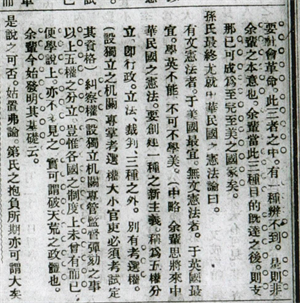 要社會革命。此三者之中。有一種辦不到。是則非
余輩之本意也。余輩當此三種目的既達之後。則支
那已可成爲至完至美之國家矣。
孫氏最終尤就中華民國之憲法論曰。
有文憲法者。于美國最宜。無文憲法者。于英國最
宜。學英不能。不可不學美。(中略)余輩思將來中
華民國之憲法。要創建一種之新主義。稱爲五權分
立。卽行政。立法。裁判。三種之外。別有考選權。
設獨立之機關。專掌考選權。大小官吏必須考試定
其資格。糾察權。設獨立機關。專管監督彈劾之事。
以上五權之分立。豈惟各國之制度上未曾有而已。
便學說上。亦不多見之。實可謂破天荒之政體也。
余輩今始發明其基礎云。
是說之可否。姑置弗論。第氏之抱負所期。亦可謂大矣。